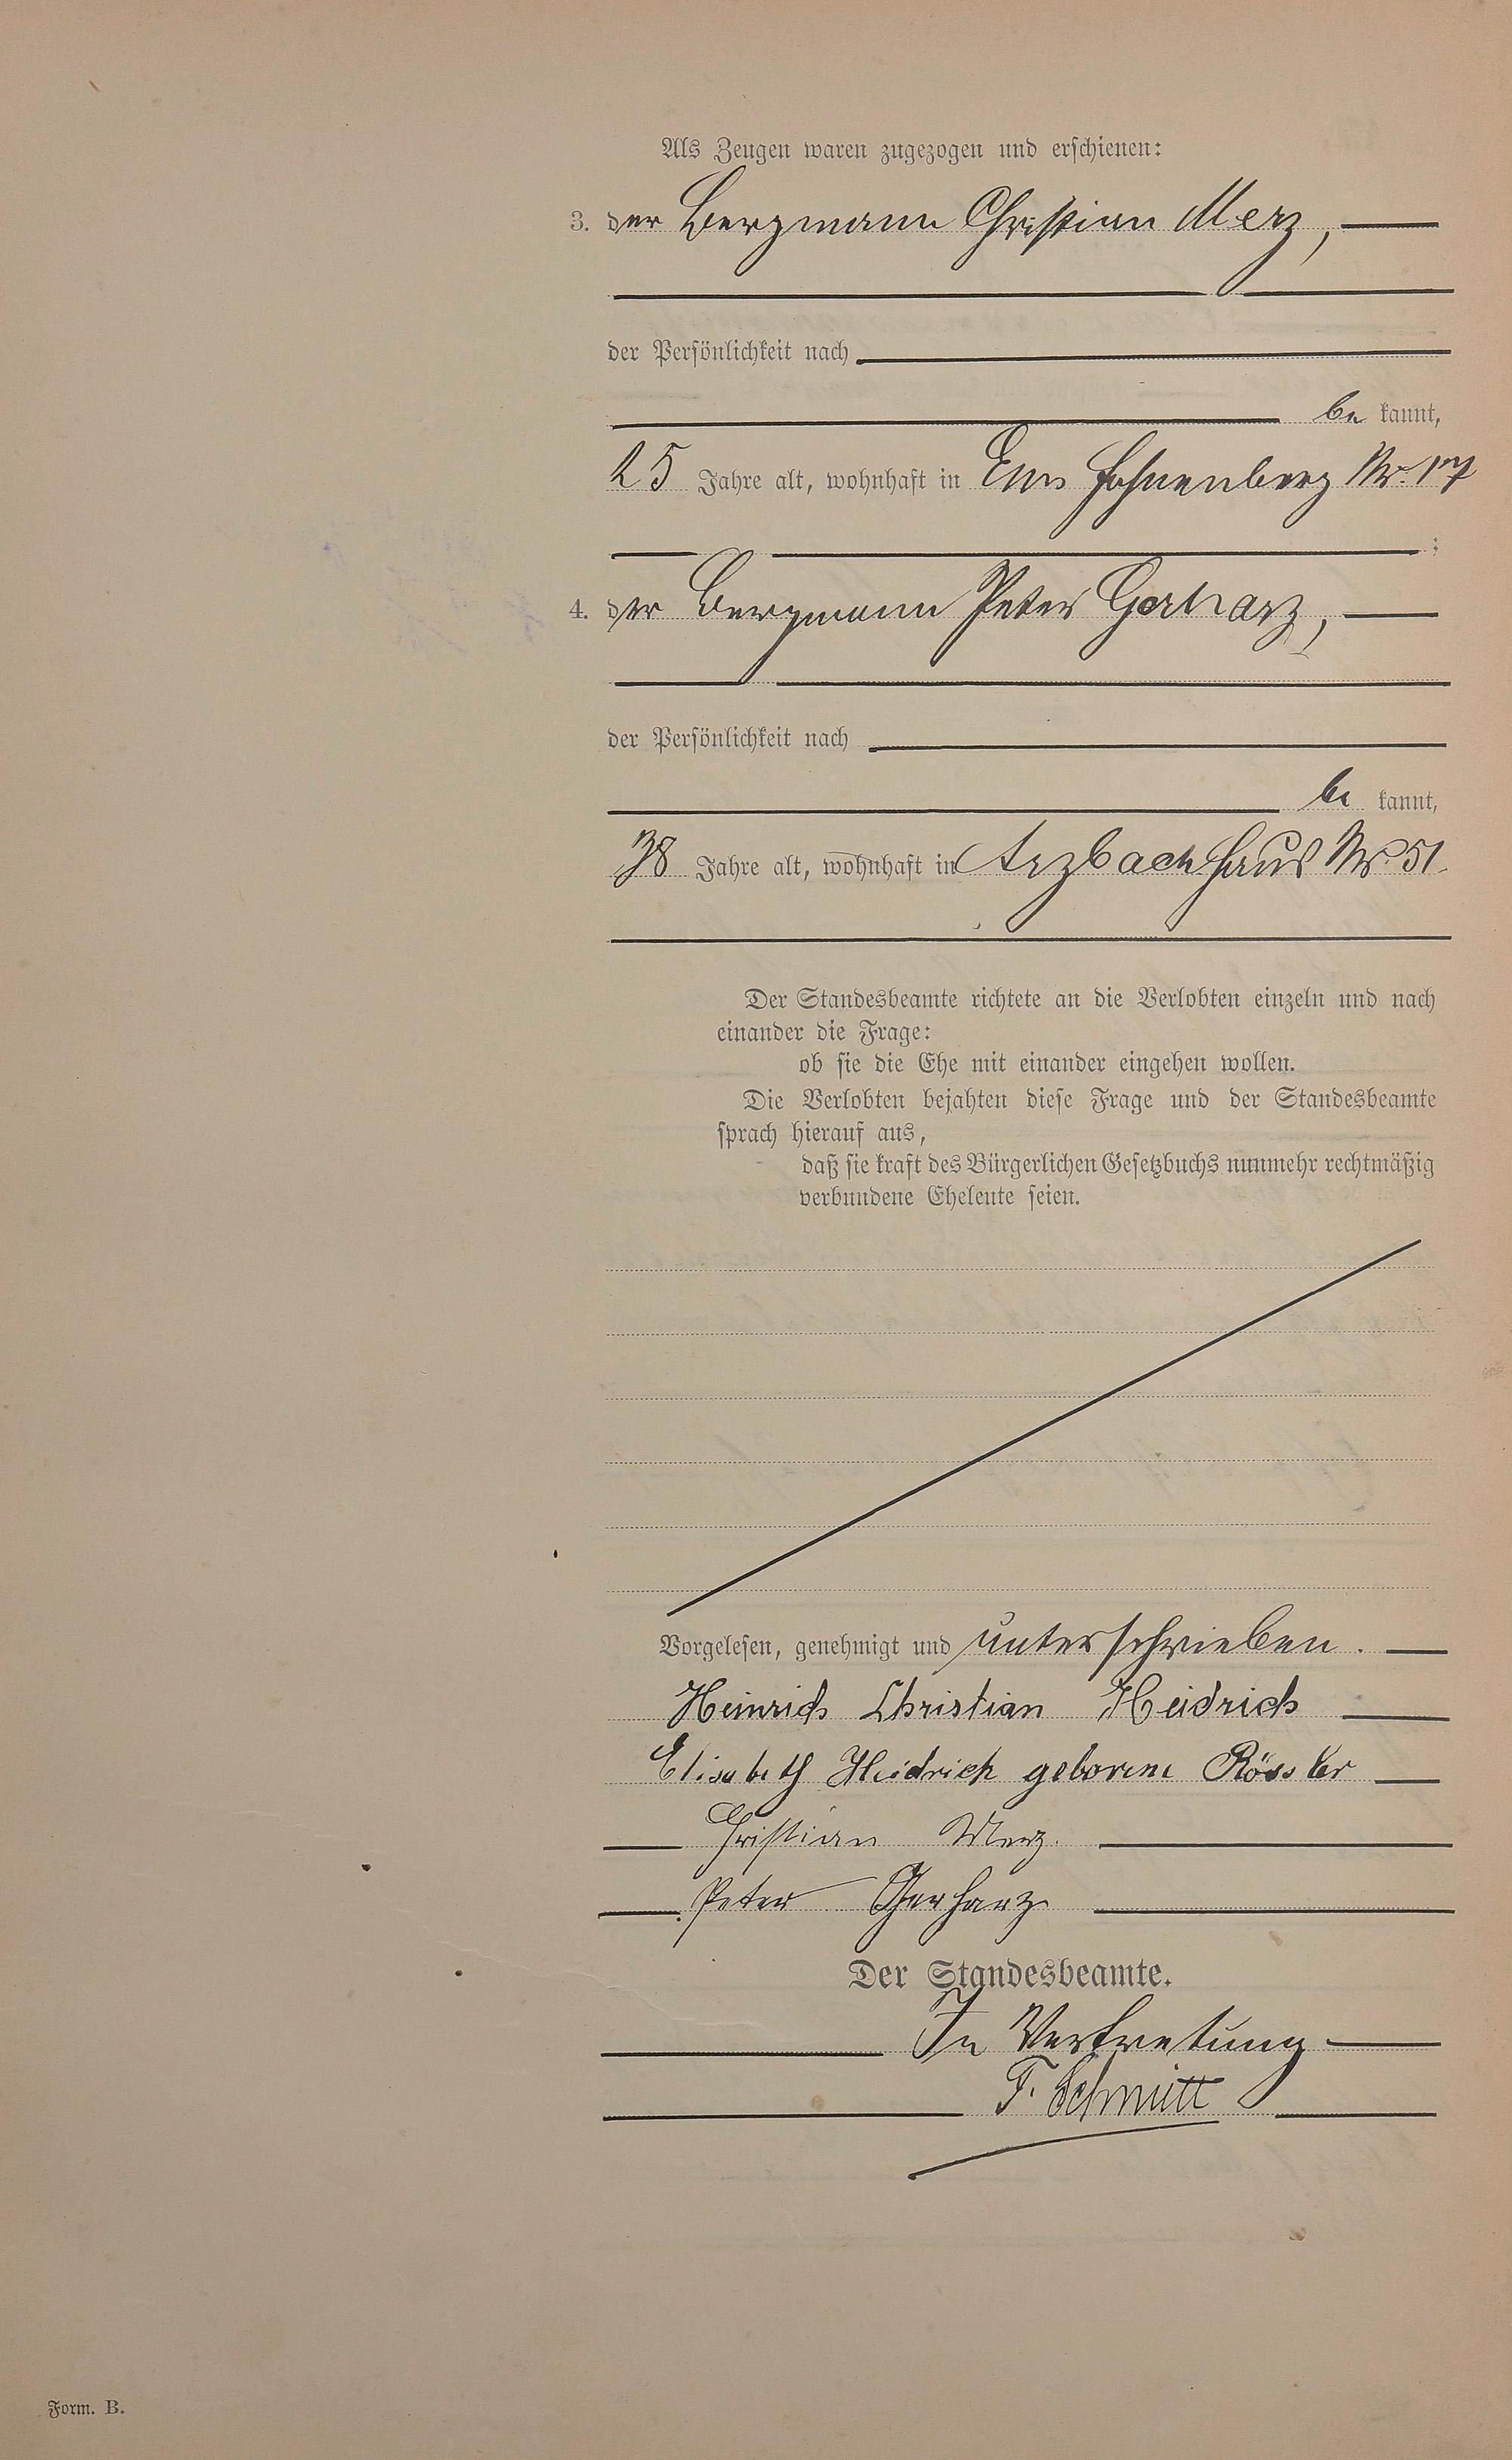 Als Zeugen waren zugezogen und erschienen:
3. der Bergmann Christian Merz,
der Persönlichkeit nach
be kannt,
25 Jahre alt, wohnhaft in Ems Nr. 17
;
4. der Bergmann Peter Gerharz,
der Persönlichkeit nach
be kannt,
38 Jahre alt, wohnhaft in Arzbach Haus Nr. 51.
Der Standesbeamte richtete an die Verlobten einzeln und nach
einander die Frage:
ob sie die Ehe mit einander eingehen wollen.
Die Verlobten bejahten diese Frage und der Standesbeamte
sprach hierauf aus,
daß sie kraft des Bürgerlichen Gesetzbuchs nunmehr rechtmäßig
verbundene Eheleute seien.
Vorgelesen, genehmigt und unterschrieben.
Heinrich Christian Heidrich
Elisabeth Heidrich geborene Rössler
Christian Merz.
Peter Gerharz
Der Standesbeamte.
In Vertretung
F. Schmitt
Form. B.